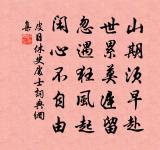 山期須早赴
世累莫遲留
忽遇狂風起
閑心不自由
皮日休史處士詞典網
集